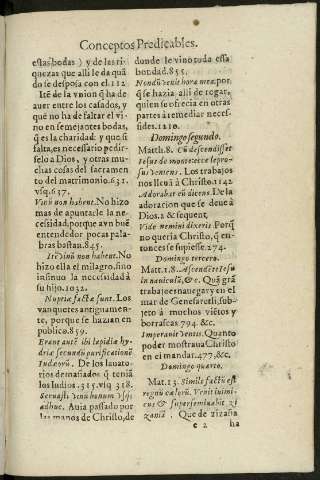 Conceptos Predicables.
estas bodas) y de las ri-
quezas que alli le da quã
do se desposa con el.112
Itẽ de la vnion q̃ ha de
auer entre los casados, y
que no ha de faltar el vi-
no en semejantes bodas,
q̃ es la charidad: y que si
falta, es necessario pedir-
selo a Dios, y otras mu-
chas cosas del sacramen
to del matrimonio.631.
vsq.637.
Vinũ non habent. No hizo
mas de apuntarle la ne-
cessidad, porque a vn buẽ
entendedor pocas pala-
bras bastan.845.
Itẽ Vinũ non habent. No
hizo ella el milagro, sino
insinuò la necessidad à
su hijo.1032.
Nuptiæ factæ sunt. Los
vanquetes antiguamen-
te, porque se hazian en
publico.859.
Erant autẽ ibi lapidæ hy-
driæ secundũ purificationẽ
Iudæorũ. De los lauato-
rios demasiados q̃ teniã
los Iudios.315.vsq 318.
Seruasti Vinũ bonum Vsq;
adhuc. Auia passado por
las manos de Christo, de
donde le vino toda essa
bondad.855.
Nondũ Venit hora mea, por
q̃ se hazia alli de rogar,
quien se ofrecia en otras
partes à remediar neces-
sides.1210.
Domingo segundo.
Matth.8. Cũ descendisset
Iesus de monte, ecce lepro-
sus Veniens. Los trabajos
nos lleuã à Christo.1142
Adorabat eũ dicens. De la
adoracion que se deue à
Dios.2 & sequent.
Vide nemini dixeris. Porq̃
no queria Christo, q̃ en-
tonces se supiesse.274.
Domingo tercero.
Matt.8. Ascendẽte Iesu
in nauiculã, &c. Que grã
trabajo es nauegar y en el
mar de Genesareth, sub-
jeto à muchos viẽtos y
borrascas 794. &c.
Imperauit Ventis. Quanto
poder mostraua Christo
en el mandar.477, &c.
Domingo quarto.
Mat.13. Simile factũ est
regnũ cælorũ. Venit inimi-
cus & superseminauit zi
zania. Que de zizaña
c 2 ha